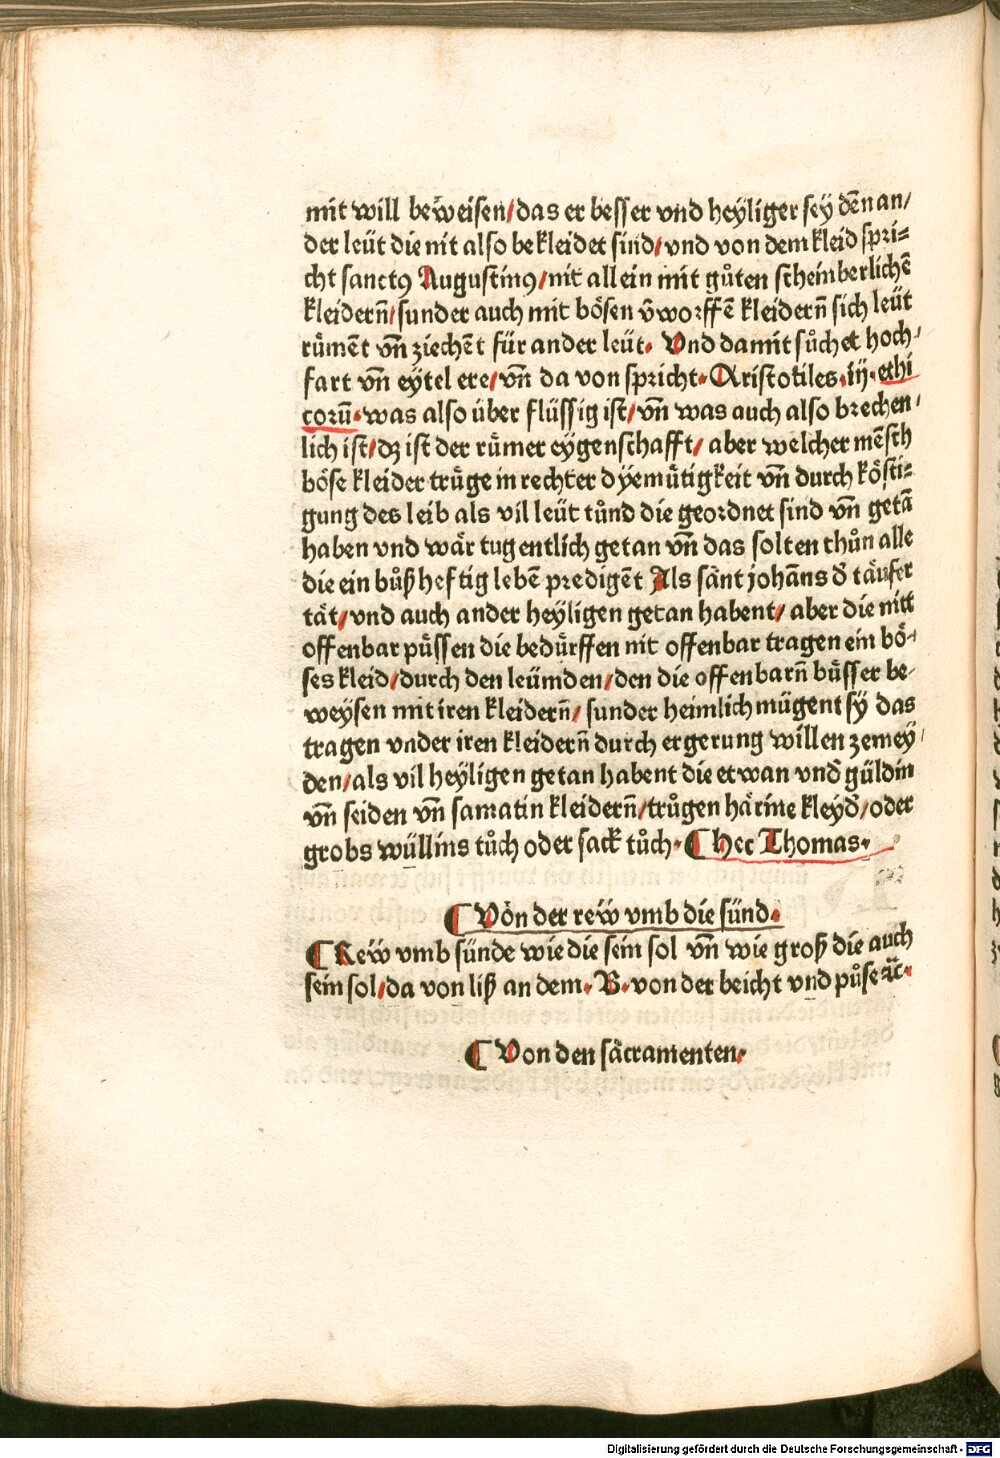 mit will beẅeisen/das er besser vnd heÿliger seÿ deñ an/
der leüt die nit also bekleidet sind/vnd von dem kleid spri⸗
cht sanctꝰ Augustinꝰ/nit allein mit gůten scheinberlichē
kleiderñ/sunder auch mit bösen v̄worffē kleiderñ sich leüt
růmēt vñ ziechēt für ander leüt. Vnd damit sůchet hoch/
fart vñ eÿtel ere/vñ da von spricht. Aristotiles.iij.ethi
corū.was also über flüssig ist/vñ was auch also brechen/
lich ist/dz ist der růmer eÿgenschafft/ aber welcher mēsch
böse kleider trůge in rechter dÿemůtigkeit vñ durch kösti⸗
gung des leib als vil leüt tůnd die geordnet sind vñ getā
haben vnd wår tugentlich getan vñ das solten thůn alle
die ein bůß heftig lebē predigēt Als sånt johāns d̄ täufer
tåt/vnd auch ander heÿligen getan habent/ aber die nitt
offenbar půssen die bedürffen nit offenbar tragen ein bö/
ses kleid/durch den leümden/den die offenbarñ büsser be/
weÿsen mit iren kleiderñ/ sunder heimlich mügent sÿ das
tragen vnder iren kleiderñ durch ergerung willen zemeÿ/
den/als vil heÿligen getan habent die etwan vnd̄ güldin
vñ seiden vñ samatin kleiderñ/trůgen hårine kleÿd̄/oder
grobs wüllins tůch oder sack tůch. ¶ Hec Thomas.
¶ Von der reẅ vmb die sünd.
¶ Reẅ vmb sünde wie die sein sol vñ wie groß die auch
sein sol/da von liß an dem. B. von der beicht vnd půse ꝛc̄.
¶ Von den såcramenten.
Digitalisierung gefördert durch die Deutsche Forschungsgemeinschaft - DFG